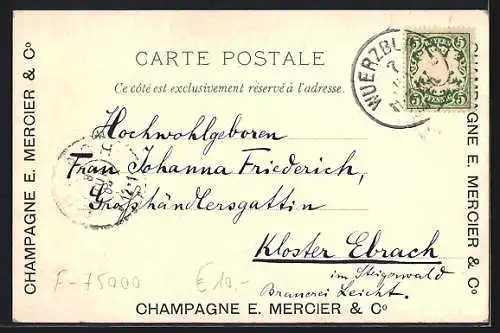 CARTE POSTALE
Ce côté est exclusivement réservé à l'adresse.
WUERZB
BAYERN
5 5
5 PFENNIG 5
Hochwohlgeboren
Frau Johanna Friederich,
Großhändlersgattin
Kloster Ebrach
im Steigerwald
Brauerei Leicht.
F-75000
€10,-
CHAMPAGNE E. MERCIER & Cº
CHAMPAGNE E. MERCIER & Cº
CHAMPAGNE E. MERCIER & Cº